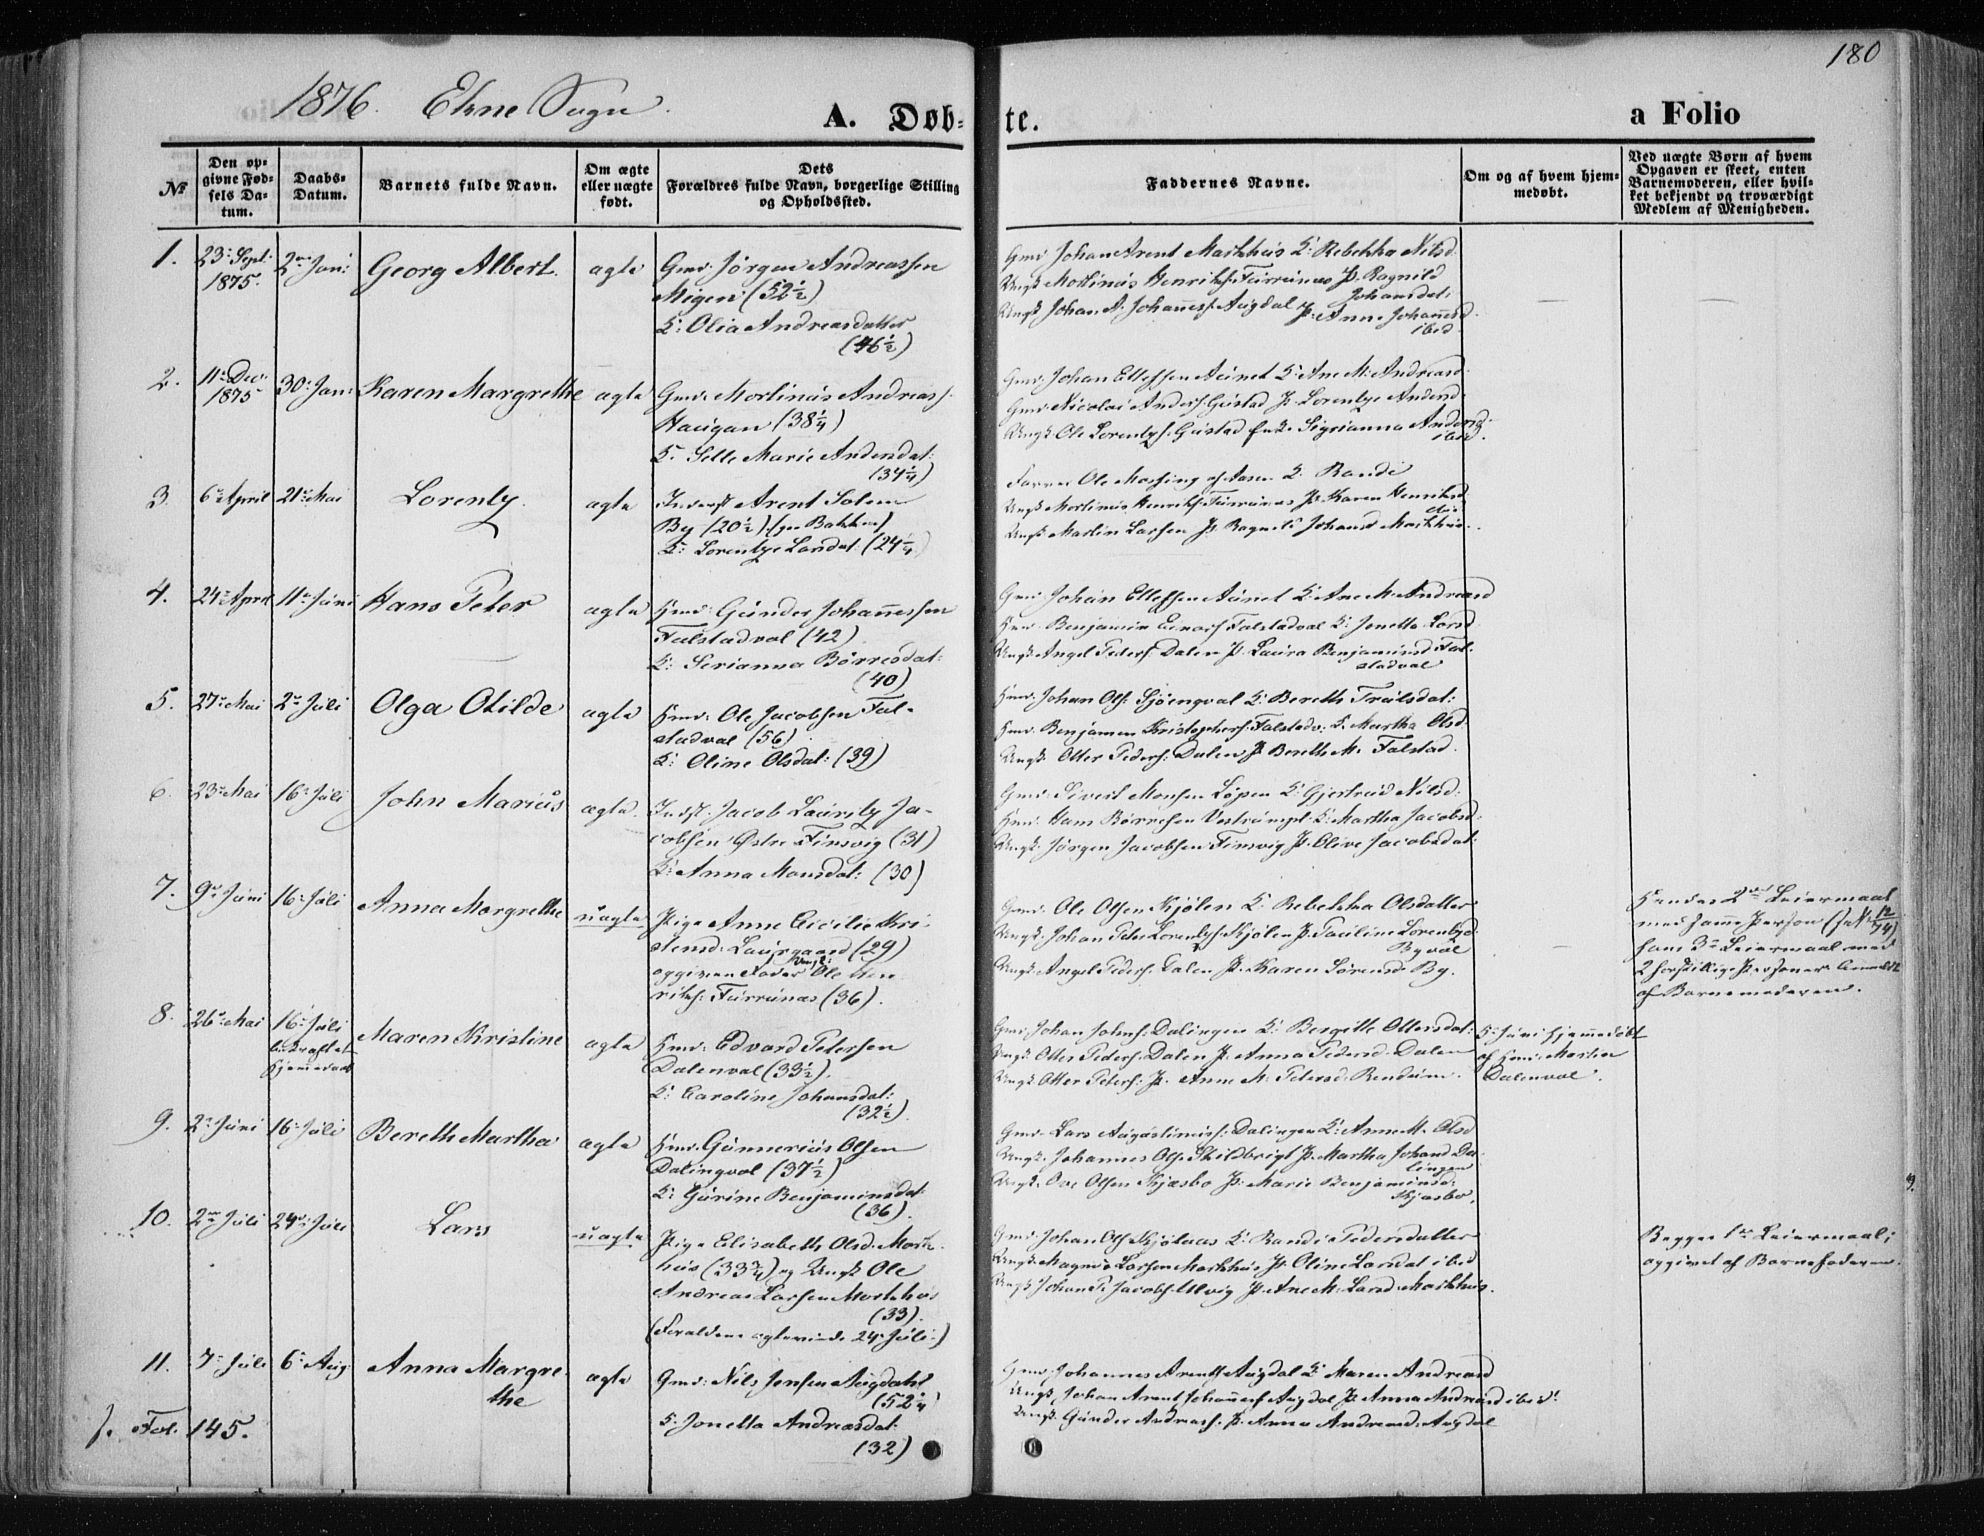 180
1876. Ekne Sogn.
A. Døb-
te.
a Folio
No
Den op-
givne Fød-
sels Da-
tum.
Daabs-
Datum.
Barnets fulde Navn.
Om ægte
eller uægte
født.
Dets
Forældres fulde Navn, borgerlige Stilling
og Opholdssted.
Faddernes Navne.
Om og af hvem hjem-
medøbt.
Ved uægte Børn af hvem
Opgaven er skeet, enten
Barnemoderen, eller hvil-
ket bekjendt og troværdigt
Medlem af Menigheden.
1.
23. Sept.
1875.
2. Jan:
Georg Albert.
ægte
Gmd: Jørgen Andreassen
Migen (52½)
K: Olia Andreasdatter
(46½)
Gmd Johan Arent Markhus K: Rebekka Nilsd:
Ungk Mortinus Henriks. Furrunes P. Ragnild
Johansdat:
Ungk Johan A. Johannes. Augdal P: Anne Johannesd
ibid.
2.
11. Dec:
1875
30. Jan:
Karen Margrethe
ægte
Gmd: Mortinus Andreas.
Haugan (38¼)
K. Marie Andersdat:
(34¼)
Gmd: Johan Ellefsen Aunet K: Ane M: Andreasd.
Gmd: Nicolai Anders. Gustad P. Lorentze Andersd.
Ungk: Ole Lorentzs. Gustad Sigrianna Andersd.
ibid.
3.
6. April
21. Mai
Lorentz.
ægte
Inderst Arent Solem
By (20½)
K: Lorentze Larsdat: (24¼)
Ole Mossing af Aasen K. Randi
Ungk Mortinus Henriks. Furrunes P. Karen Henriksd
Ungk Martin Larsen P. Ragnild Johansd Markhus.
4.
24. April
11. Juni
Hans Peter
ægte
Hmd: Gunder Johannessen
Falstadval (42)
K: Serianna Børresdat:
(40)
Gmd: Johan Ellefsen Aunet K: Ane M: Andreasd
Hmd. Benjamin Falstadval K: Jonetta Larsd
Ungk. Angel Peders. Dalen P. Laura Benjaminsd Fal-
stadval
5.
27. Mai
2. Juli
Olga Otilde
ægte
Hmd: Ole Jacobsen Fal-
stadval (56)
K: Oline Olsdat: (39)
Hmd. Johan Ols. Sjøengval K: Bereth Trulsdat:
Hmd. Benjamin Kristophers. Falstadv: K. Martha Olsd.
Ungk. Otter Peders. Dalen P. Bereth M. Falstad.
6.
23. Mai
16. Juli
John Marius
ægte.
Indst: Jacob Lauritz Ja-
cobsen Østre Finsvig (31)
K: Anna Monsdat: (30)
Gmd. Sivert Monsen K: Gjertrud Nilsd:
Hmd. Hans Børresen K: Martha Jacobsd.
Ungk. Jørgen Jacobsen Finsvig P. Olive Jacobsdat:
7.
9. Juni
16. Juli
Anna Margrethe
uægte
Pige Anne Cicilie Kri-
stensd: Laurgaard (29)
opgiven Fader Ungk: Ole Hen-
riks. Furrunes (36).
Gmd. Ole Olsen Kjølen K. Rebekka Olsdatter
Ungk. Johan Peter Lorentzs. Kjølen P. Lorentzd.
Byval
Ungk. Angel Peders. Dalen P. Karen Sørensd By.
Hendes 2det Leiermaal
med samme Person (se No 12/74)
hans 3. Leiermaal med
2 forskjellige Personer. Anmeldt
af Barnemoderen.
8.
26. Mai
16. Juli
bekræftet
Hjemmedaab
Maren Kristine
ægte
Hmd: Edvard Petersen
Dalenval (33½).
K: Caroline Johansdat:
(32½).
Gmd: Johan Johns. Dalingen K: Bergitte Ottersdat:
Ungk. Otter Peders. Dalen P. Anna Pedersd. Dalen
Ungk. Otter Peters. P. Anne M. Petersd.
5. Juni hjemmedøbt
af Hmd: Morten
Dalenval.
9.
2. Juni
16. Juli
Bereth Martha
ægte
Hmd. Gunnerius Olsen
Dalingval (37½)
K: Gurine Benjaminsdat:
(36).
Gmd. Lars Augustinus. Dalingen K: Anne M. Olsd
Ungk. Johannes Ols. P. Martha Johansd Da-
lingen
Ungk. Ole Olsen Kjæsbo P: Marie Benjaminsd:
Kjæsbo.
10.
2. Juli
24. Juli
Lars
uægte
Pige Elisabeth Olsd. Mark-
hus (33¾) og Ungk Ole
Andreas Larsen Markhus
(33).
(Forældrene ægteviede 24. Juli.)
Gmd. Johan Ols. Kjølaas K: Randi Pedersdatter
Ungk. Magnus Larsen Markhus P. Oline Larsdat ibid
Ungk Johan P. Jacobs. P. Ane M. Larsd Markhus.
Begges 1ste Leiermaal;
opgivet af Barnefaderen.
11.
7. Juli
6. Aug
Anna Margre-
the
ægte
Gmd: Nils Jensen Augdahl
(52¼)
K. Jonetta Andreasdat:
(32)
Gmd. Johannes Arents. Augdal K: Maren Andreasd
Ungk. Johan Arent Johannes. Augdal P. Anna Andreasd ibid.
Ungk. Gunder Andreas. P. Anna Andreasd. Augdal
f. Fol. 145.